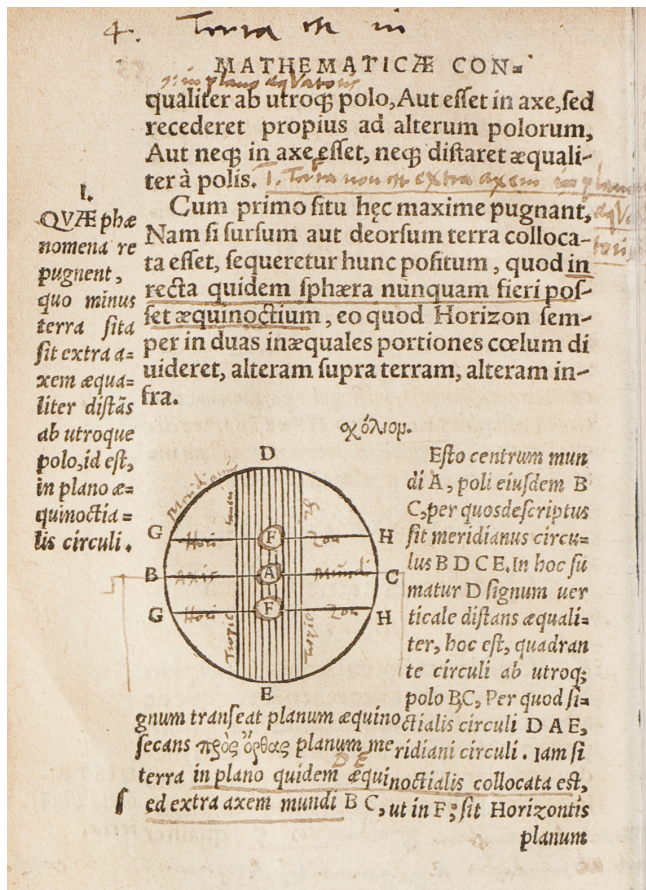 4. Terra est in
MATHEMATICÆ CON=
s: in plano æquatoris
qualiter ab utroq; polo, Aut esset in axe, sed
recederet propius ad alterum polorum,
Aut neq; in axe esset, neq; distaret æquali-
ter à polis. 1. Terra non est extra axem in plano
æqua
toris
Cum primo situ hęc maxime pugnant,
Nam si sursum aut deorsum terra colloca-
ta esset, sequeretur hunc positum, quod in
recta quidem sphæra nunquam fieri pos-
set æquinoctium, eo quod Horizon sem-
per in duas inæquales portiones cœlum di
uideret, alteram supra terram, alteram in-
fra.
I.
QVÆ phæ
nomena re
pugnent,
quo minus
terra sita
sit extra a=
xem æqua=
liter distās
ab utroque
polo, id est,
in plano æ=
quinoctia=
lis circuli.
σχόλιομ.
D
Meridianus
G Hori F zon H
B Axis A Mundi C
G Hori F zon H
Tropic
E
Esto centrum mun
di A, poli eiusdem B
C, per quos descriptus
sit meridianus circu=
lus B D C E. In hoc su
matur D signum uer
ticale distans æquali=
ter, hoc est, quadran
te circuli ab utroq;
polo B C, Per quod si=
gnum transeat planum æquinoctialis circuli D A E,
secans πρὸς ὄρθας planum meridiani circuli. Iam si
D E
terra in plano quidem æquinoctialis collocata est,
sed extra axem mundi B C, ut in F; sit Horizontis
planum